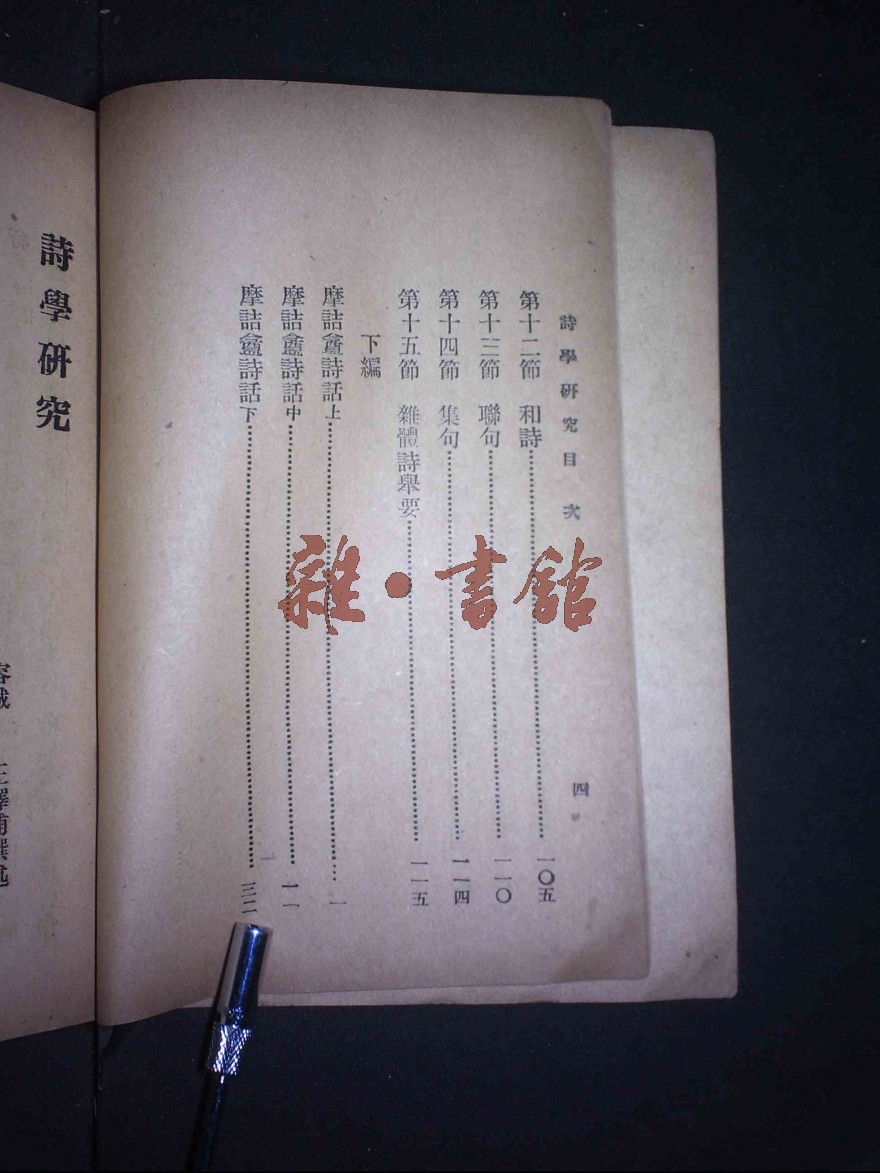 詩學研究目次
四
第十二節 和詩……一〇五
第十三節 聯句……一一〇
第十四節 集句……一一四
第十五節 雜體詩舉要……一一五
下編
摩詰盦詩話上……一
摩詰盦詩話中……一一
摩詰盦詩話下……三二
雜·書館
詩學研究
澤浦撰述